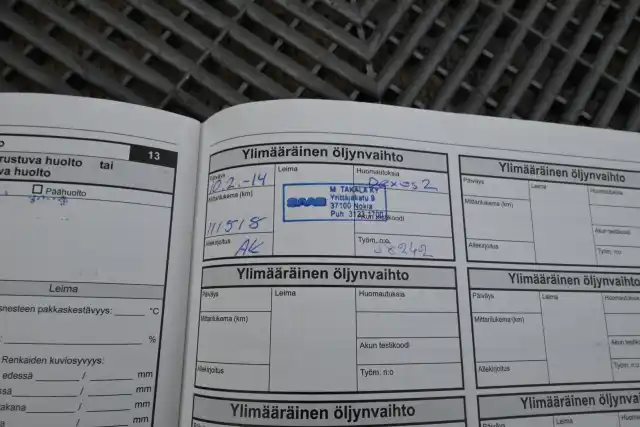 13
rustuva huolto tai
va huolto
Päähuolto
Leima
snesteen pakkaskestävyys: °C
%
Renkaiden kuviosyvyys:
edessä / mm
ssä / mm
takana / mm
/ mm
Ylimääräinen öljynvaihto
Päiväys
Leima
Huomautuksia
10.2.-14
Dexos 2
Mittarilukema (km)
111518
SAAB
M TAKALA KY
Yrittäjäkatu 9
37100 Nokia
Puh. 3121 1700
Akun testikoodi
Allekirjoitus
AK
Työm. n:o
58242
Ylimääräinen öljynvaihto
Päiväys
Leima
Huomautuksia
Mittarilukema (km)
Akun testikoodi
Allekirjoitus
Työm. n:o
Ylimääräinen öljynvaihto
Päiväys
Leima
Huomautuksia
Mittarilukema (km)
Akun testikoodi
Allekirjoitus
Työm. n:o
Ylimääräinen öljynvaihto
Päiväys
Leima
Huomautuksia
Mittarilukema (km)
Akun testikoodi
Allekirjoitus
Työm. n:o
Ylimääräinen öljynvaihto
Päiväys
Leima
Huomautuksia
Ylimääräinen öljynva